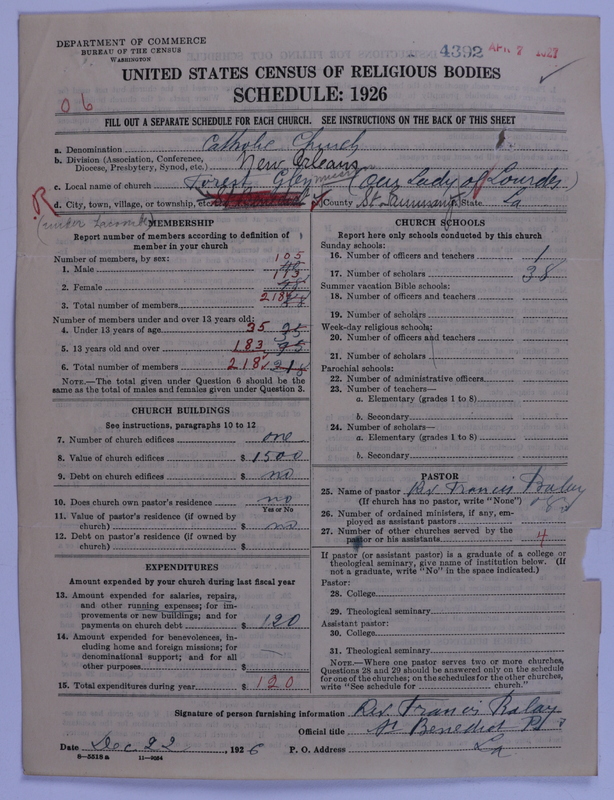 DEPARTMENT OF COMMERCE
BUREAU OF THE CENSUS
WASHINGTON
4392 APR 7 1927
UNITED STATES CENSUS OF RELIGIOUS BODIES
SCHEDULE: 1926
06
FILL OUT A SEPARATE SCHEDULE FOR EACH CHURCH. SEE INSTRUCTIONS ON THE BACK OF THIS SHEET
a. Denomination Catholic Church
b. Division (Association, Conference, Diocese, Presbytery, Synod, etc.) New Orleans
c. Local name of church Forest Glen mission (Our Lady of Lourdes)
d. City, town, village, or township, etc. County St. Tammany State La
R
(under Lacombe)
MEMBERSHIP
Report number of members according to definition of
member in your church
Number of members, by sex:
1. Male 105
2. Female 113
3. Total number of members 218
Number of members under and over 13 years old:
4. Under 13 years of age 35 35
5. 13 years old and over 183 95
6. Total number of members 218 218
NOTE.—The total given under Question 6 should be
same as the total of males and females given under Question 3.
CHURCH BUILDINGS
See instructions, paragraphs 10 to 12
7. Number of church edifices one
8. Value of church edifices $ 1500
9. Debt on church edifices $ no
10. Does church own pastor's residence no
Yes or No
11. Value of pastor's residence (if owned by
church) $ no
12. Debt on pastor's residence (if owned by
church) $
EXPENDITURES
Amount expended by your church during last fiscal year
13. Amount expended for salaries, repairs,
and other running expenses; for im-
provements or new buildings; and for
payments on church debt $ 120
14. Amount expended for benevolences, in-
cluding home and foreign missions; for
denominational support; and for all
other purposes $ —
15. Total expenditures during year $ 120
CHURCH SCHOOLS
Report here only schools conducted by this church
Sunday schools:
16. Number of officers and teachers 1
17. Number of scholars 38
Summer vacation Bible schools:
18. Number of officers and teachers
19. Number of scholars
Week-day religious schools:
20. Number of officers and teachers
21. Number of scholars
Parochial schools:
22. Number of administrative officers
23. Number of teachers—
a. Elementary (grades 1 to 8)
b. Secondary
24. Number of scholars—
a. Elementary (grades 1 to 8)
b. Secondary
PASTOR
25. Name of pastor Rev. Francis Balay
(If church has no pastor, write "None")
26. Number of ordained ministers, if any, em-
ployed as assistant pastors
27. Number of other churches served by the
pastor or his assistants 4
If pastor (or assistant pastor) is a graduate of a college or
theological seminary, give name of institution below. (If
not a graduate, write "No" in the space indicated.)
Pastor:
28. College
29. Theological seminary
Assistant pastor:
30. College
31. Theological seminary
NOTE.—Where one pastor serves two or more churches,
Questions 28 and 29 should be answered only on the schedule
for one of the churches; on the schedules for the other churches,
write "See schedule for church."
Signature of person furnishing information Rev. Francis Balay
Official title St Benedict P.O
Date Dec 22, 1926 P. O. Address La
8—5518a 11—9054